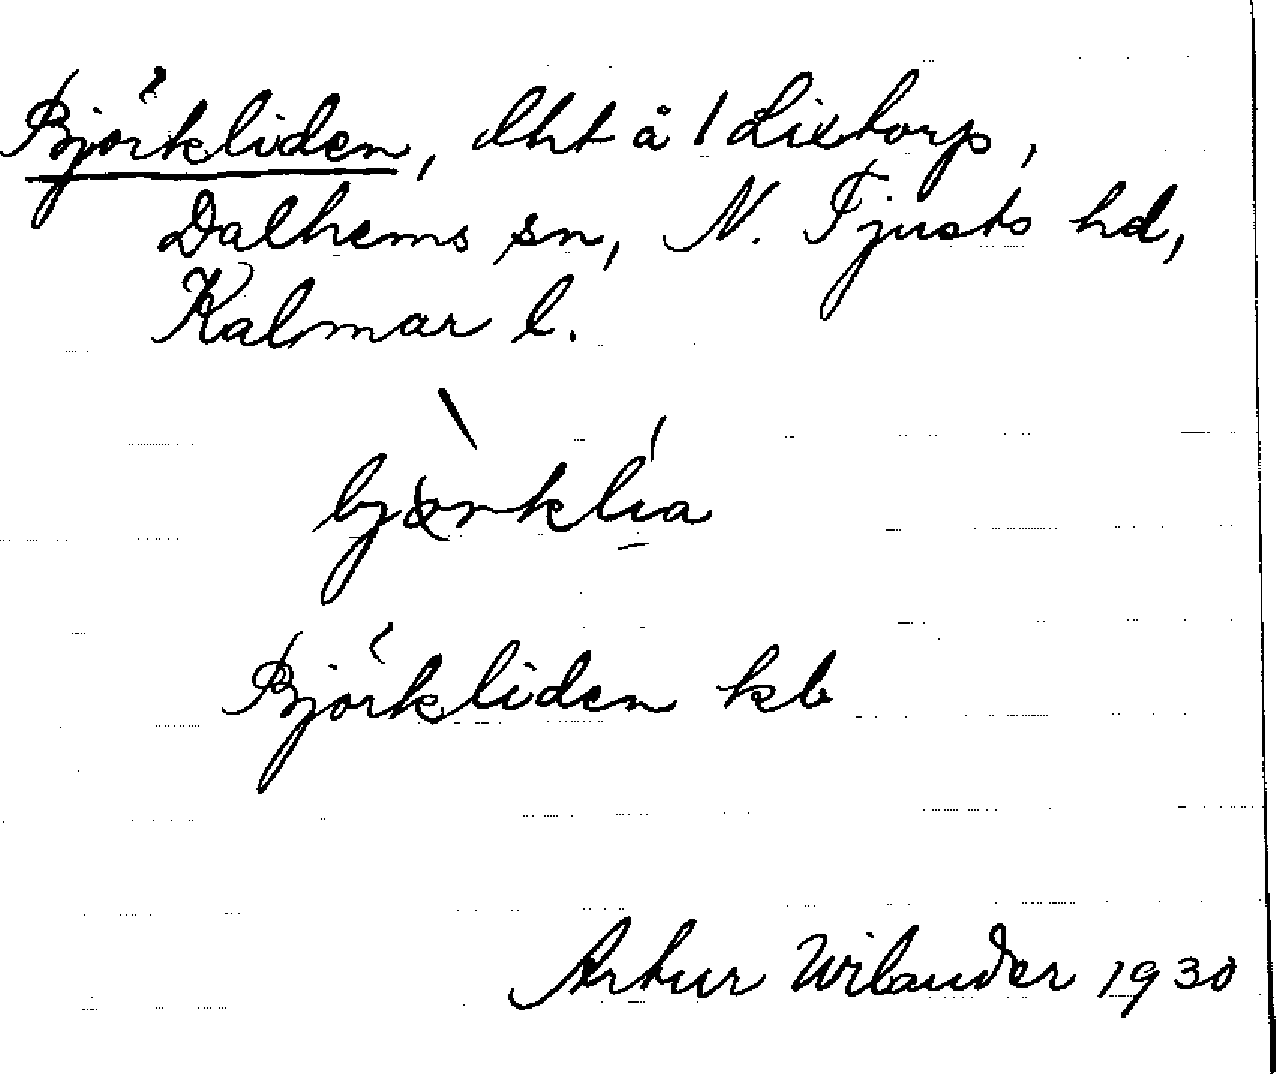 Björkliden, lht å 1 Lixtorp,
Dalhems sn, N. Tjusts hd,
Kalmar l.
bjørklia
Björkliden kb
Artur Wilander 1930